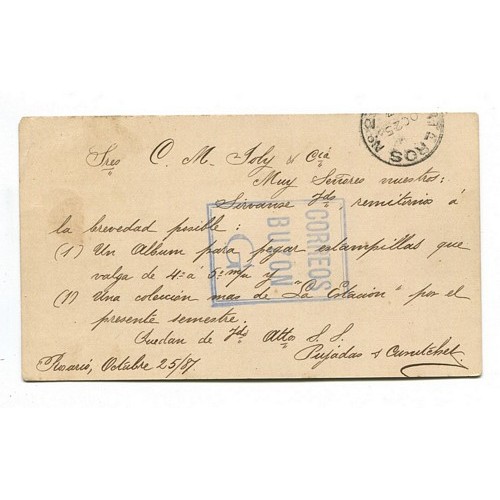 Sres C. M. Joly & Cia
Muy Señores nuestros:
Sirvanse Vds remitirnos á
la brevedad posible:
(1) Un Album para pegar estampillas que
valga de 4 á 5 m/n y
(1) Una coleccion mas de "La Estacion" por el
presente semestre.
Quedan de Vds Attos S. S.
Pujadas &
Rosario, Octubre 25/87
CORREOS
BUZON
5
EROS No 2
OC 25